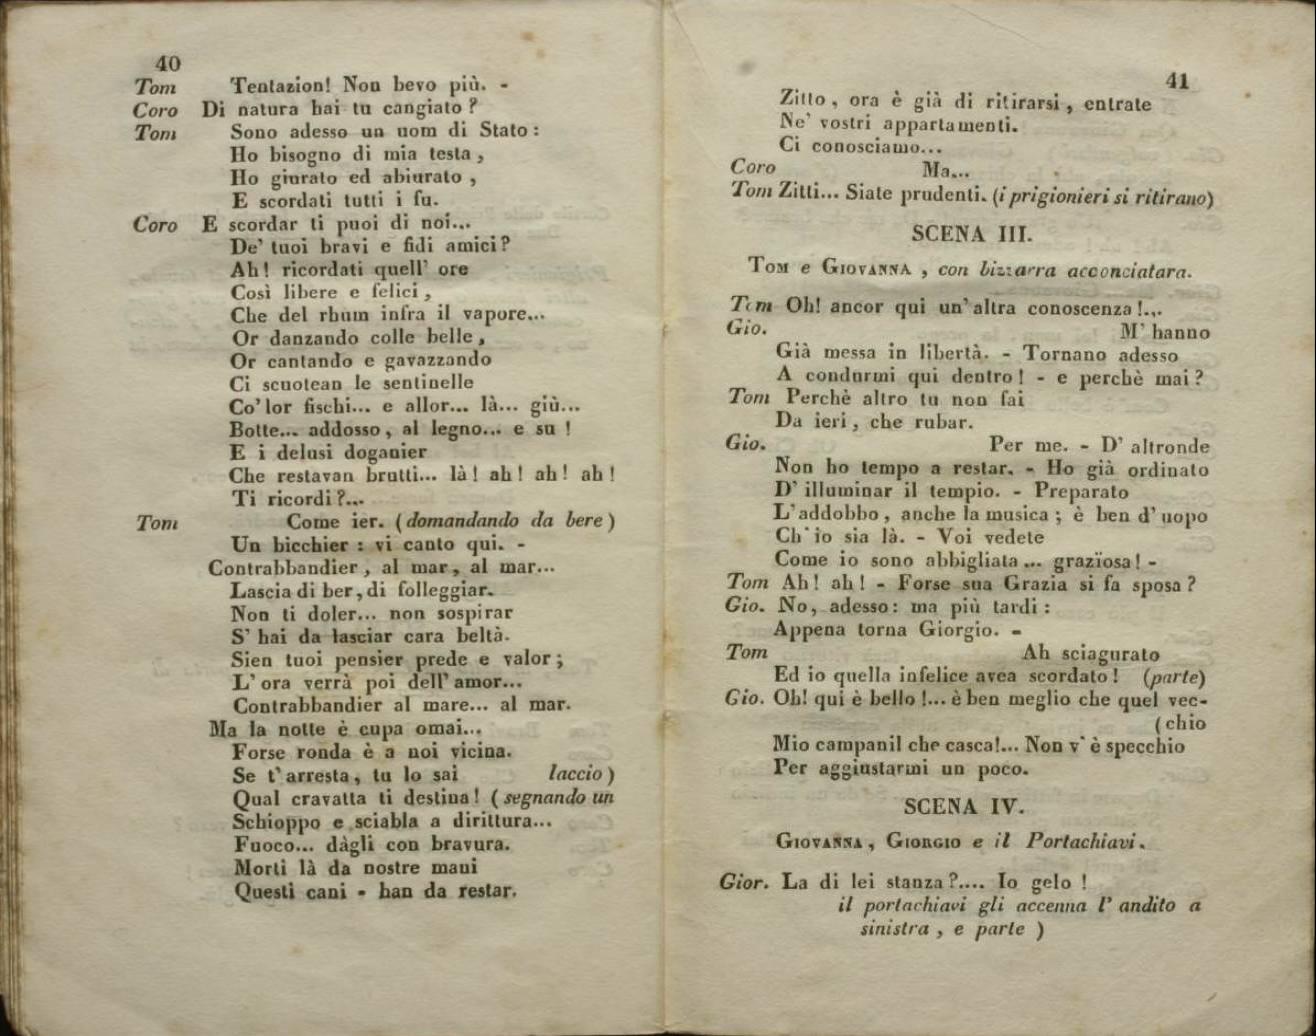 40
Tom Tentazion! Non bevo più. -
Coro Di natura hai tu cangiato?
Tom Sono adesso un uom di Stato:
Ho bisogno di mia testa,
Ho giurato ed abiurato,
E scordati tutti i fu.
Coro E scordar ti puoi di noi...
De' tuoi bravi e fidi amici?
Ah! ricordati quell' ore
Così libere e felici,
Che del rhum infra il vapore...
Or danzando colle belle,
Or cantando e gavazzando
Ci scuotean le sentinelle
Co' lor fischi... e allor... là... giù...
Botte... addosso, al legno... e su!
E i delusi doganier
Che restavan brutti... là! ah! ah! ah!
Ti ricordi?...
Tom Come ier. (domandando da bere)
Un bicchier: vi canto qui. -
Contrabbandier, al mar, al mar...
Lascia di ber, di folleggiar.
Non ti doler... non sospirar
S' hai da lasciar cara beltà.
Sien tuoi pensier prede e valor;
L' ora verrà poi dell' amor...
Contrabbandier al mare... al mar.
Ma la notte è cupa omai...
Forse ronda è a noi vicina.
Se t' arresta, tu lo sai laccio)
Qual cravatta ti destina! (segnando un
Schioppo e sciabla a dirittura...
Fuoco... dàgli con bravura.
Morti là da nostre mani
Questi cani - han da restar.
41
Zitto, ora è già di ritirarsi, entrate
Ne' vostri appartamenti.
Ci conosciamo...
Coro Ma...
Tom Zitti... Siate prudenti. (i prigionieri si ritirano)
SCENA III.
Tom e Giovanna, con bizzarra acconciatara.
Tom Oh! ancor qui un' altra conoscenza!...
Gio. M' hanno
Già messa in libertà. - Tornano adesso
A condurmi qui dentro! - e perchè mai?
Tom Perchè altro tu non fai
Da ieri, che rubar.
Gio. Per me. - D' altronde
Non ho tempo a restar. - Ho già ordinato
D' illuminar il tempio. - Preparato
L' addobbo, anche la musica; è ben d' uopo
Ch' io sia là. - Voi vedete
Come io sono abbigliata... grazïosa! -
Tom Ah! ah! - Forse sua Grazia si fa sposa?
Gio. No, adesso: ma più tardi:
Appena torna Giorgio. -
Tom Ah sciagurato
Ed io quella infelice avea scordato! (parte)
Gio. Oh! qui è bello!... è ben meglio che quel vec-
(chio
Mio campanil che casca!... Non v' è specchio
Per aggiustarmi un poco.
SCENA IV.
Giovanna, Giorgio e il Portachiavi.
Gior. La di lei stanza?.... Io gelo!
il portachiavi gli accenna l' andito a
sinistra, e parte)